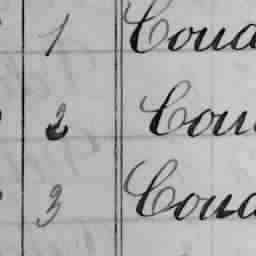 1 Coua
2 Cou
3 Coua